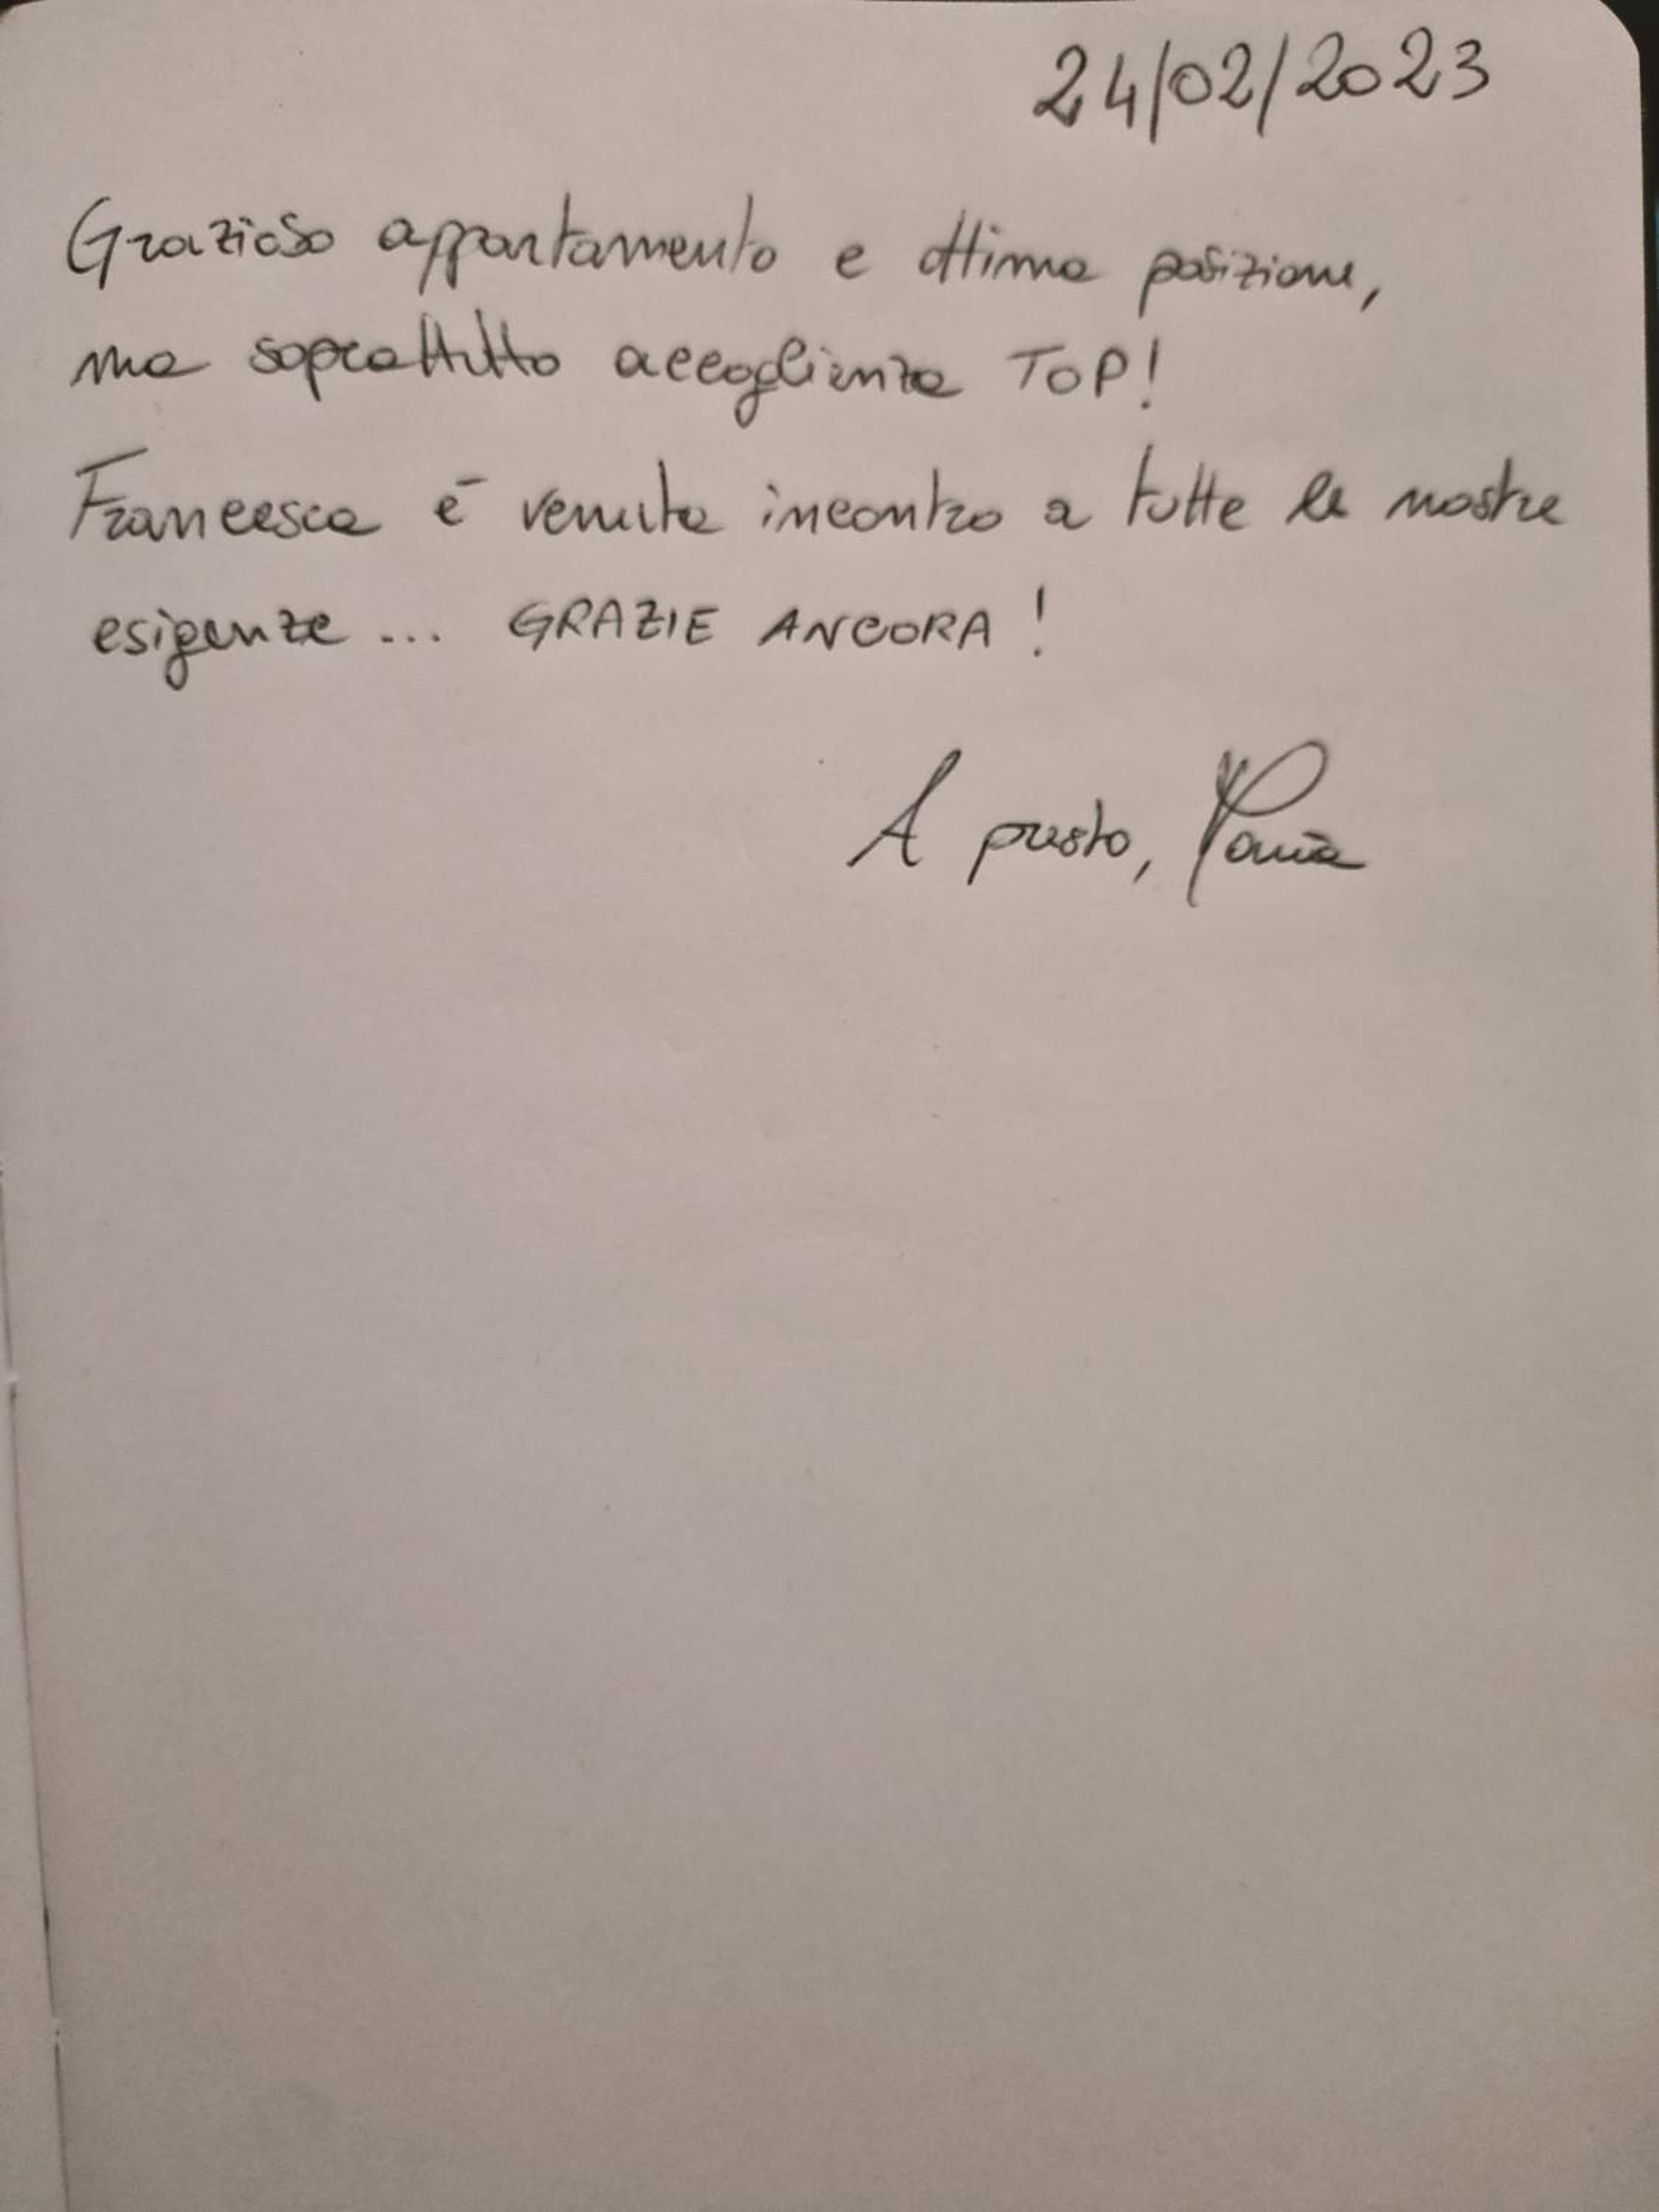 24/02/2023
Grazioso appartamento e ottima posizione,
ma soprattutto accoglienza TOP!
Francesca è venuta incontro a tutte le nostre
esigenze ... GRAZIE ANCORA !
A presto,